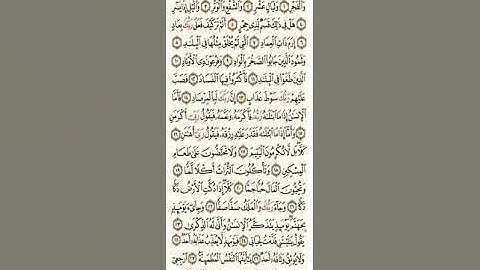 وَالْفَجْرِ ﴿١﴾ وَلَيَالٍ عَشْرٍ ﴿٢﴾ وَالشَّفْعِ وَالْوَتْرِ ﴿٣﴾ وَاللَّيْلِ إِذَا يَسْرِ
﴿٤﴾ هَلْ فِي ذَٰلِكَ قَسَمٌ لِّذِي حِجْرٍ ﴿٥﴾ أَلَمْ تَرَ كَيْفَ فَعَلَ رَبُّكَ بِعَادٍ
﴿٦﴾ إِرَمَ ذَاتِ الْعِمَادِ ﴿٧﴾ الَّتِي لَمْ يُخْلَقْ مِثْلُهَا فِي الْبِلَادِ ﴿٨﴾
وَثَمُودَ الَّذِينَ جَابُوا الصَّخْرَ بِالْوَادِ ﴿٩﴾ وَفِرْعَوْنَ ذِي الْأَوْتَادِ ﴿١٠﴾
الَّذِينَ طَغَوْا فِي الْبِلَادِ ﴿١١﴾ فَأَكْثَرُوا فِيهَا الْفَسَادَ ﴿١٢﴾ فَصَبَّ
عَلَيْهِمْ رَبُّكَ سَوْطَ عَذَابٍ ﴿١٣﴾ إِنَّ رَبَّكَ لَبِالْمِرْصَادِ ﴿١٤﴾ فَأَمَّا
الْإِنسَانُ إِذَا مَا ابْتَلَاهُ رَبُّهُ فَأَكْرَمَهُ وَنَعَّمَهُ فَيَقُولُ رَبِّي أَكْرَمَنِ
﴿١٥﴾ وَأَمَّا إِذَا مَا ابْتَلَاهُ فَقَدَرَ عَلَيْهِ رِزْقَهُ فَيَقُولُ رَبِّي أَهَانَنِ ﴿١٦﴾
كَلَّا بَل لَّا تُكْرِمُونَ الْيَتِيمَ ﴿١٧﴾ وَلَا تَحَاضُّونَ عَلَىٰ طَعَامِ
الْمِسْكِينِ ﴿١٨﴾ وَتَأْكُلُونَ التُّرَاثَ أَكْلًا لَّمًّا ﴿١٩﴾
وَتُحِبُّونَ الْمَالَ حُبًّا جَمًّا ﴿٢٠﴾ كَلَّا إِذَا دُكَّتِ الْأَرْضُ دَكًّا
دَكًّا ﴿٢١﴾ وَجَاءَ رَبُّكَ وَالْمَلَكُ صَفًّا صَفًّا ﴿٢٢﴾ وَجِيءَ يَوْمَئِذٍ
بِجَهَنَّمَ يَوْمَئِذٍ يَتَذَكَّرُ الْإِنسَانُ وَأَنَّىٰ لَهُ الذِّكْرَىٰ ﴿٢٣﴾
يَقُولُ يَا لَيْتَنِي قَدَّمْتُ لِحَيَاتِي ﴿٢٤﴾ فَيَوْمَئِذٍ لَّا يُعَذِّبُ عَذَابَهُ أَحَدٌ ﴿٢٥﴾
وَلَا يُوثِقُ وَثَاقَهُ أَحَدٌ ﴿٢٦﴾ يَا أَيَّتُهَا النَّفْسُ الْمُطْمَئِنَّةُ ﴿٢٧﴾ ارْجِعِي